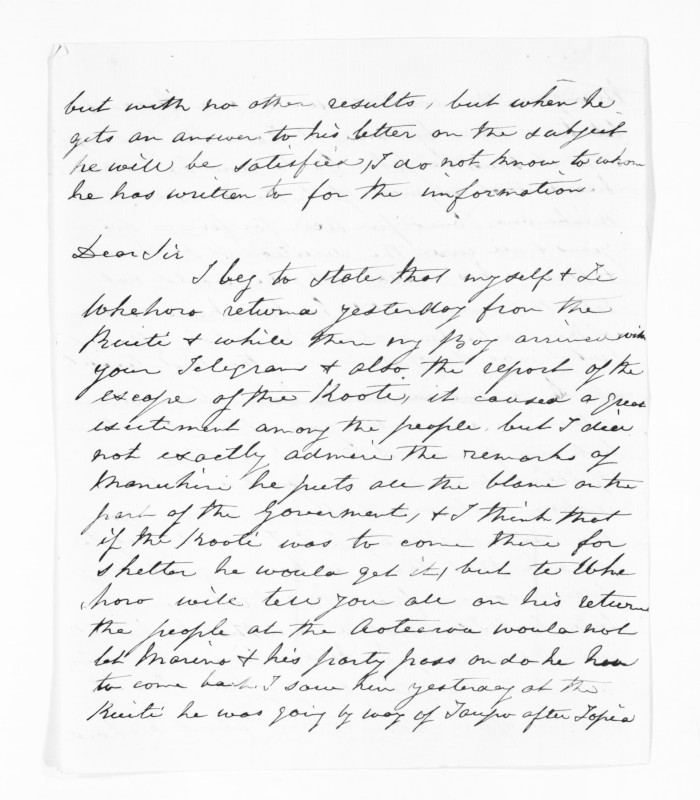 but with no other results, but when he
gets an answer to his letter on the subject
he will be satisfied, I do not know to whom
he has written to for the imformation
Dear Sir
I beg to state that myself & Te
Whehoro returnd yesterday from the
Kuiti & while there my Boy arrived with
your Telegram & also the report of the
escape of the Kooti, it caused a great
excitement among the people but I did
not exactly admire the remarks of
Manuhiri he puts all the blame on the
part of the Goverment, & I think that
if the Kooti was to come there for
shelter he would get it, but te Whe
horo will tell you all on his return
the people at the Aotearoa would not
let Marino & his party pass on so he had
to come back I saw him yesterday at the
Kuiti he was going by way of Taupo after Topia